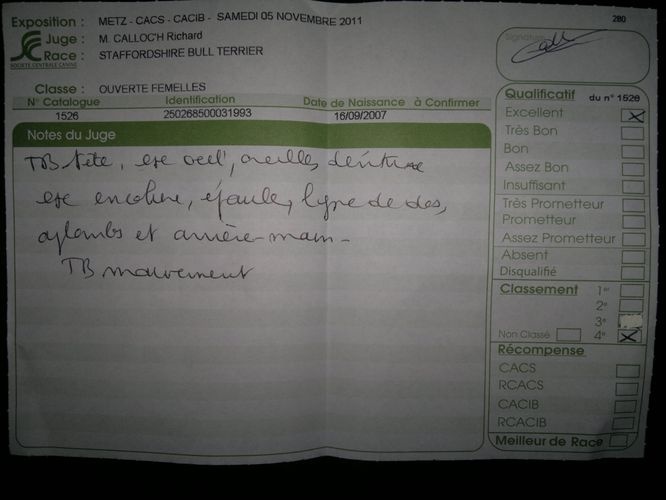 Exposition : METZ - CACS - CACIB - SAMEDI 05 NOVEMBRE 2011
280
Juge : M. CALLOC'H Richard
Race : STAFFORDSHIRE BULL TERRIER
SOCIÉTÉ CENTRALE CANINE
Signature
Classe : OUVERTE FEMELLES
N° Catalogue Identification Date de Naissance à Confirmer
1526 250268500031993 16/09/2007
Notes du Juge
TB tête, exc oeil, oreilles, denture
exc encolure, épaule, ligne de dos,
aplombs et arrière-main -
TB mouvement
Qualificatif du n° 1526
Excellent X
Très Bon
Bon
Assez Bon
Insuffisant
Très Prometteur
Prometteur
Assez Prometteur
Absent
Disqualifié
Classement 1er
2e
3e
Non Classé 4e X
Récompense
CACS
RCACS
CACIB
RCACIB
Meilleur de Race